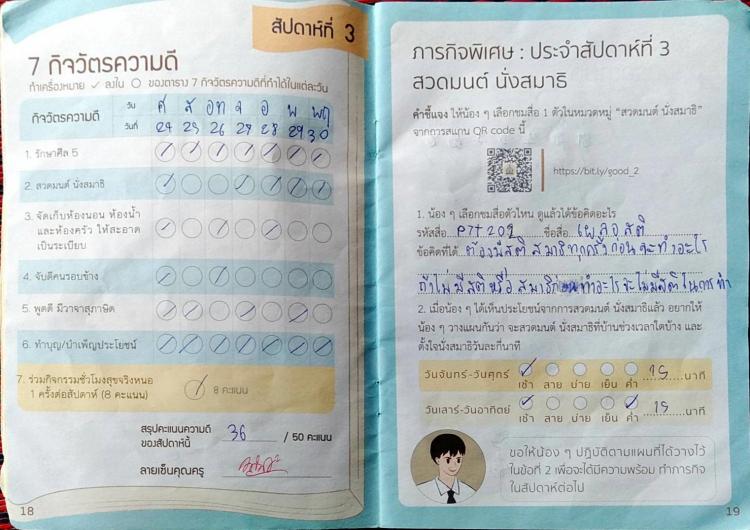 สัปดาห์ที่ 3
7 กิจวัตรความดี
ทำเครื่องหมาย ✓ ลงใน ○ ของตาราง 7 กิจวัตรความดีที่ทำได้ในแต่ละวัน
กิจวัตรความดี
วัน ศ ส อท จ อ พ พฤ
วันที่ 24 25 26 27 28 29 30
1. รักษาศีล 5
2. สวดมนต์ นั่งสมาธิ
3. จัดเก็บห้องนอน ห้องน้ำ
และห้องครัว ให้สะอาด
เป็นระเบียบ
4. จับดีคนรอบข้าง
5. พูดดี มีวาจาสุภาษิต
6. ทำบุญ/บำเพ็ญประโยชน์
7. ร่วมกิจกรรมชั่วโมงสุขจริงหนอ
1 ครั้งต่อสัปดาห์ (8 คะแนน)
8 คะแนน
สรุปคะแนนความดี
ของสัปดาห์นี้ 36 / 50 คะแนน
ลายเซ็นคุณครู
18
ภารกิจพิเศษ : ประจำสัปดาห์ที่ 3
สวดมนต์ นั่งสมาธิ
คำชี้แจง ให้น้อง ๆ เลือกชมสื่อ 1 ตัวในหมวดหมู่ “สวดมนต์ นั่งสมาธิ”
จากการสแกน QR code นี้
https://bit.ly/good_2
1. น้อง ๆ เลือกชมสื่อตัวไหน ดูแล้วได้ข้อคิดอะไร
รหัสสื่อ P7T202 ชื่อสื่อ เผลอสติ
ข้อคิดที่ได้ ต้องมีสติ สมาธิทุกครั้งก่อนจะทำอะไร
ถ้าไม่มีสติหรือสมาธิ ทำอะไรจะไม่มีสติในการทำ
2. เมื่อน้อง ๆ ได้เห็นประโยชน์จากการสวดมนต์ นั่งสมาธิแล้ว อยากให้
น้อง ๆ วางแผนกันว่า จะสวดมนต์ นั่งสมาธิที่บ้านช่วงเวลาใดบ้าง และ
ตั้งใจนั่งสมาธิวันละกี่นาที
วันจันทร์-วันศุกร์ เช้า สาย บ่าย เย็น ค่ำ 15 นาที
วันเสาร์-วันอาทิตย์ เช้า สาย บ่าย เย็น ค่ำ 15 นาที
ขอให้น้อง ๆ ปฏิบัติตามแผนที่ได้วางไว้
ในข้อที่ 2 เพื่อจะได้มีความพร้อม ทำภารกิจ
ในสัปดาห์ต่อไป
19